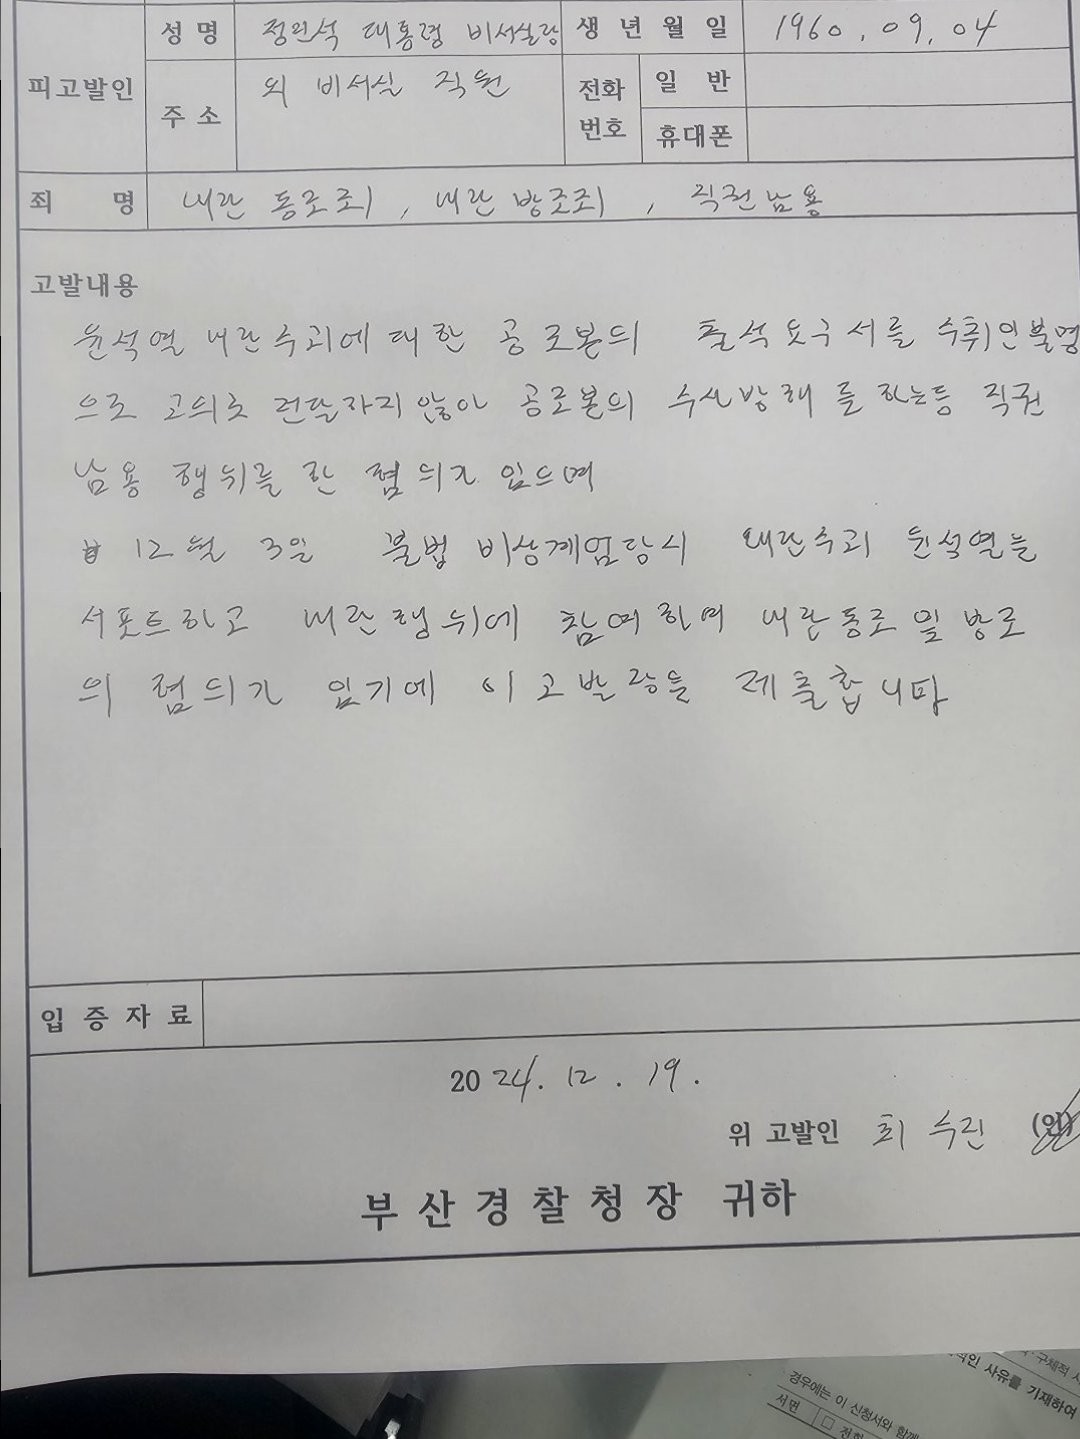 피고발인 성 명 정진석 대통령 비서실장 생 년 월 일 1960. 09. 04
주 소 외 비서실 직원 전화 번호 일 반
휴대폰
죄 명 내란 동조죄, 내란 방조죄, 직권남용
고발내용
윤석열 내란수괴에 대한 공조본의 출석요구서를 수취인불명
으로 고의로 전달하지 않아 공조본의 수사방해를 하는등 직권
남용 행위를 한 혐의가 있으며
12월 3일 불법 비상계엄당시 내란수괴 윤석열을
서포트하고 내란행위에 참여하며 내란동조 및 방조
의 혐의가 있기에 이 고발장을 제출합니다
입 증 자 료
2024. 12. 19.
위 고발인 최수린 (인)
부 산 경 찰 청 장 귀하
구체적
적인 사유를 기재하여
경우에는 이 신청서와 함께
서면 □ 전화